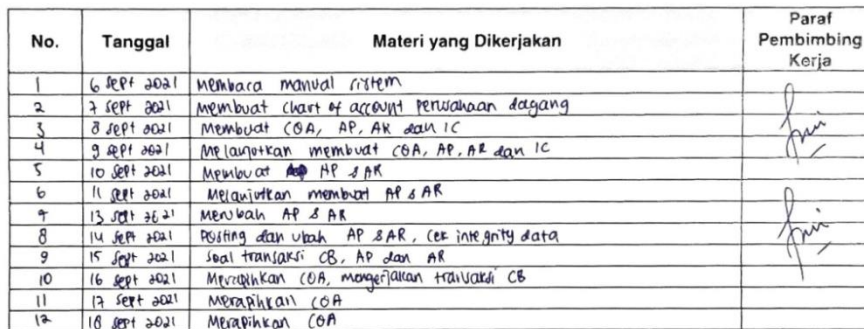 No. Tanggal Materi yang Dikerjakan Paraf Pembimbing Kerja
1 6 Sept 2021 Membaca manual sistem
2 7 Sept 2021 Membuat chart of account perusahaan dagang
3 8 Sept 2021 Membuat COA, AP, AR dan IC
4 9 Sept 2021 Melanjutkan membuat COA, AP, AR dan IC
5 10 Sept 2021 Membuat AP & AR
6 11 Sept 2021 Melanjutkan membuat AP & AR
7 13 Sept 2021 Merubah AP & AR
8 14 Sept 2021 Posting dan ubah AP & AR, cek integrity data
9 15 Sept 2021 Soal transaksi CB, AP dan AR
10 16 Sept 2021 Merapihkan COA, mengerjakan transaksi CB
11 17 Sept 2021 Merapihkan COA
12 18 Sept 2021 Merapihkan COA